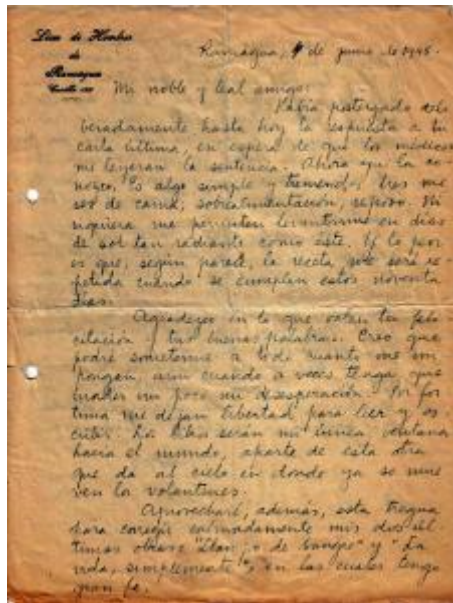 Liceo de Hombres
de
Rancagua
Casilla
Rancagua, 9 de junio de 1945.
Mi noble y leal amigo:
Había postergado deli
beradamente hasta hoy la respuesta a tu
carta última, en espera de que los médicos
me leyeran la sentencia. Ahora ya la co-
nozco. Es algo simple y tremendo: tres me
ses de cama, sobrealimentación, reposo. Ni
siquiera me permiten levantarme en días
de sol tan radiante como éste. Y lo peor
es que, según parece, la receta me será re-
petida cuando se cumplan estos noventa
días.
Agradezco en lo que valen tu feli
citación y tus buenas palabras. Creo que
podré someterme a todo cuanto me im
pongan, aun cuando a veces tenga que
un poco mi desesperación. Por for
tuna me dejan libertad para leer y es
cribir. Los libros serán mi única ventana
hacia el mundo, aparte de esta otra
que da al cielo en donde ya se mue
ven los volantines.
Aprovecharé, además, esta tregua
para corregir calmadamente mis dos úl
timas obras: "Llampo de Sangre" y "La
vida, simplemente", en las cuales tengo
gran fe.